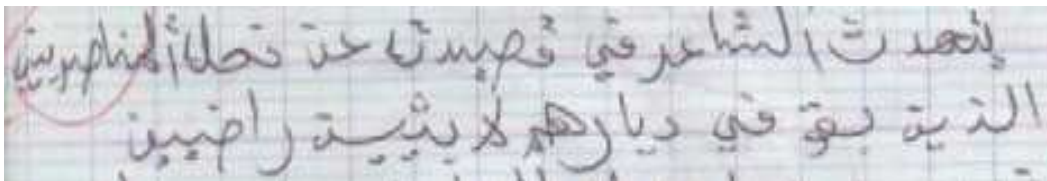 يتحدث الشاعر في قصيدته عن تحلة المناصرين
الذين بقو في ديارهم لابثيين راضيين